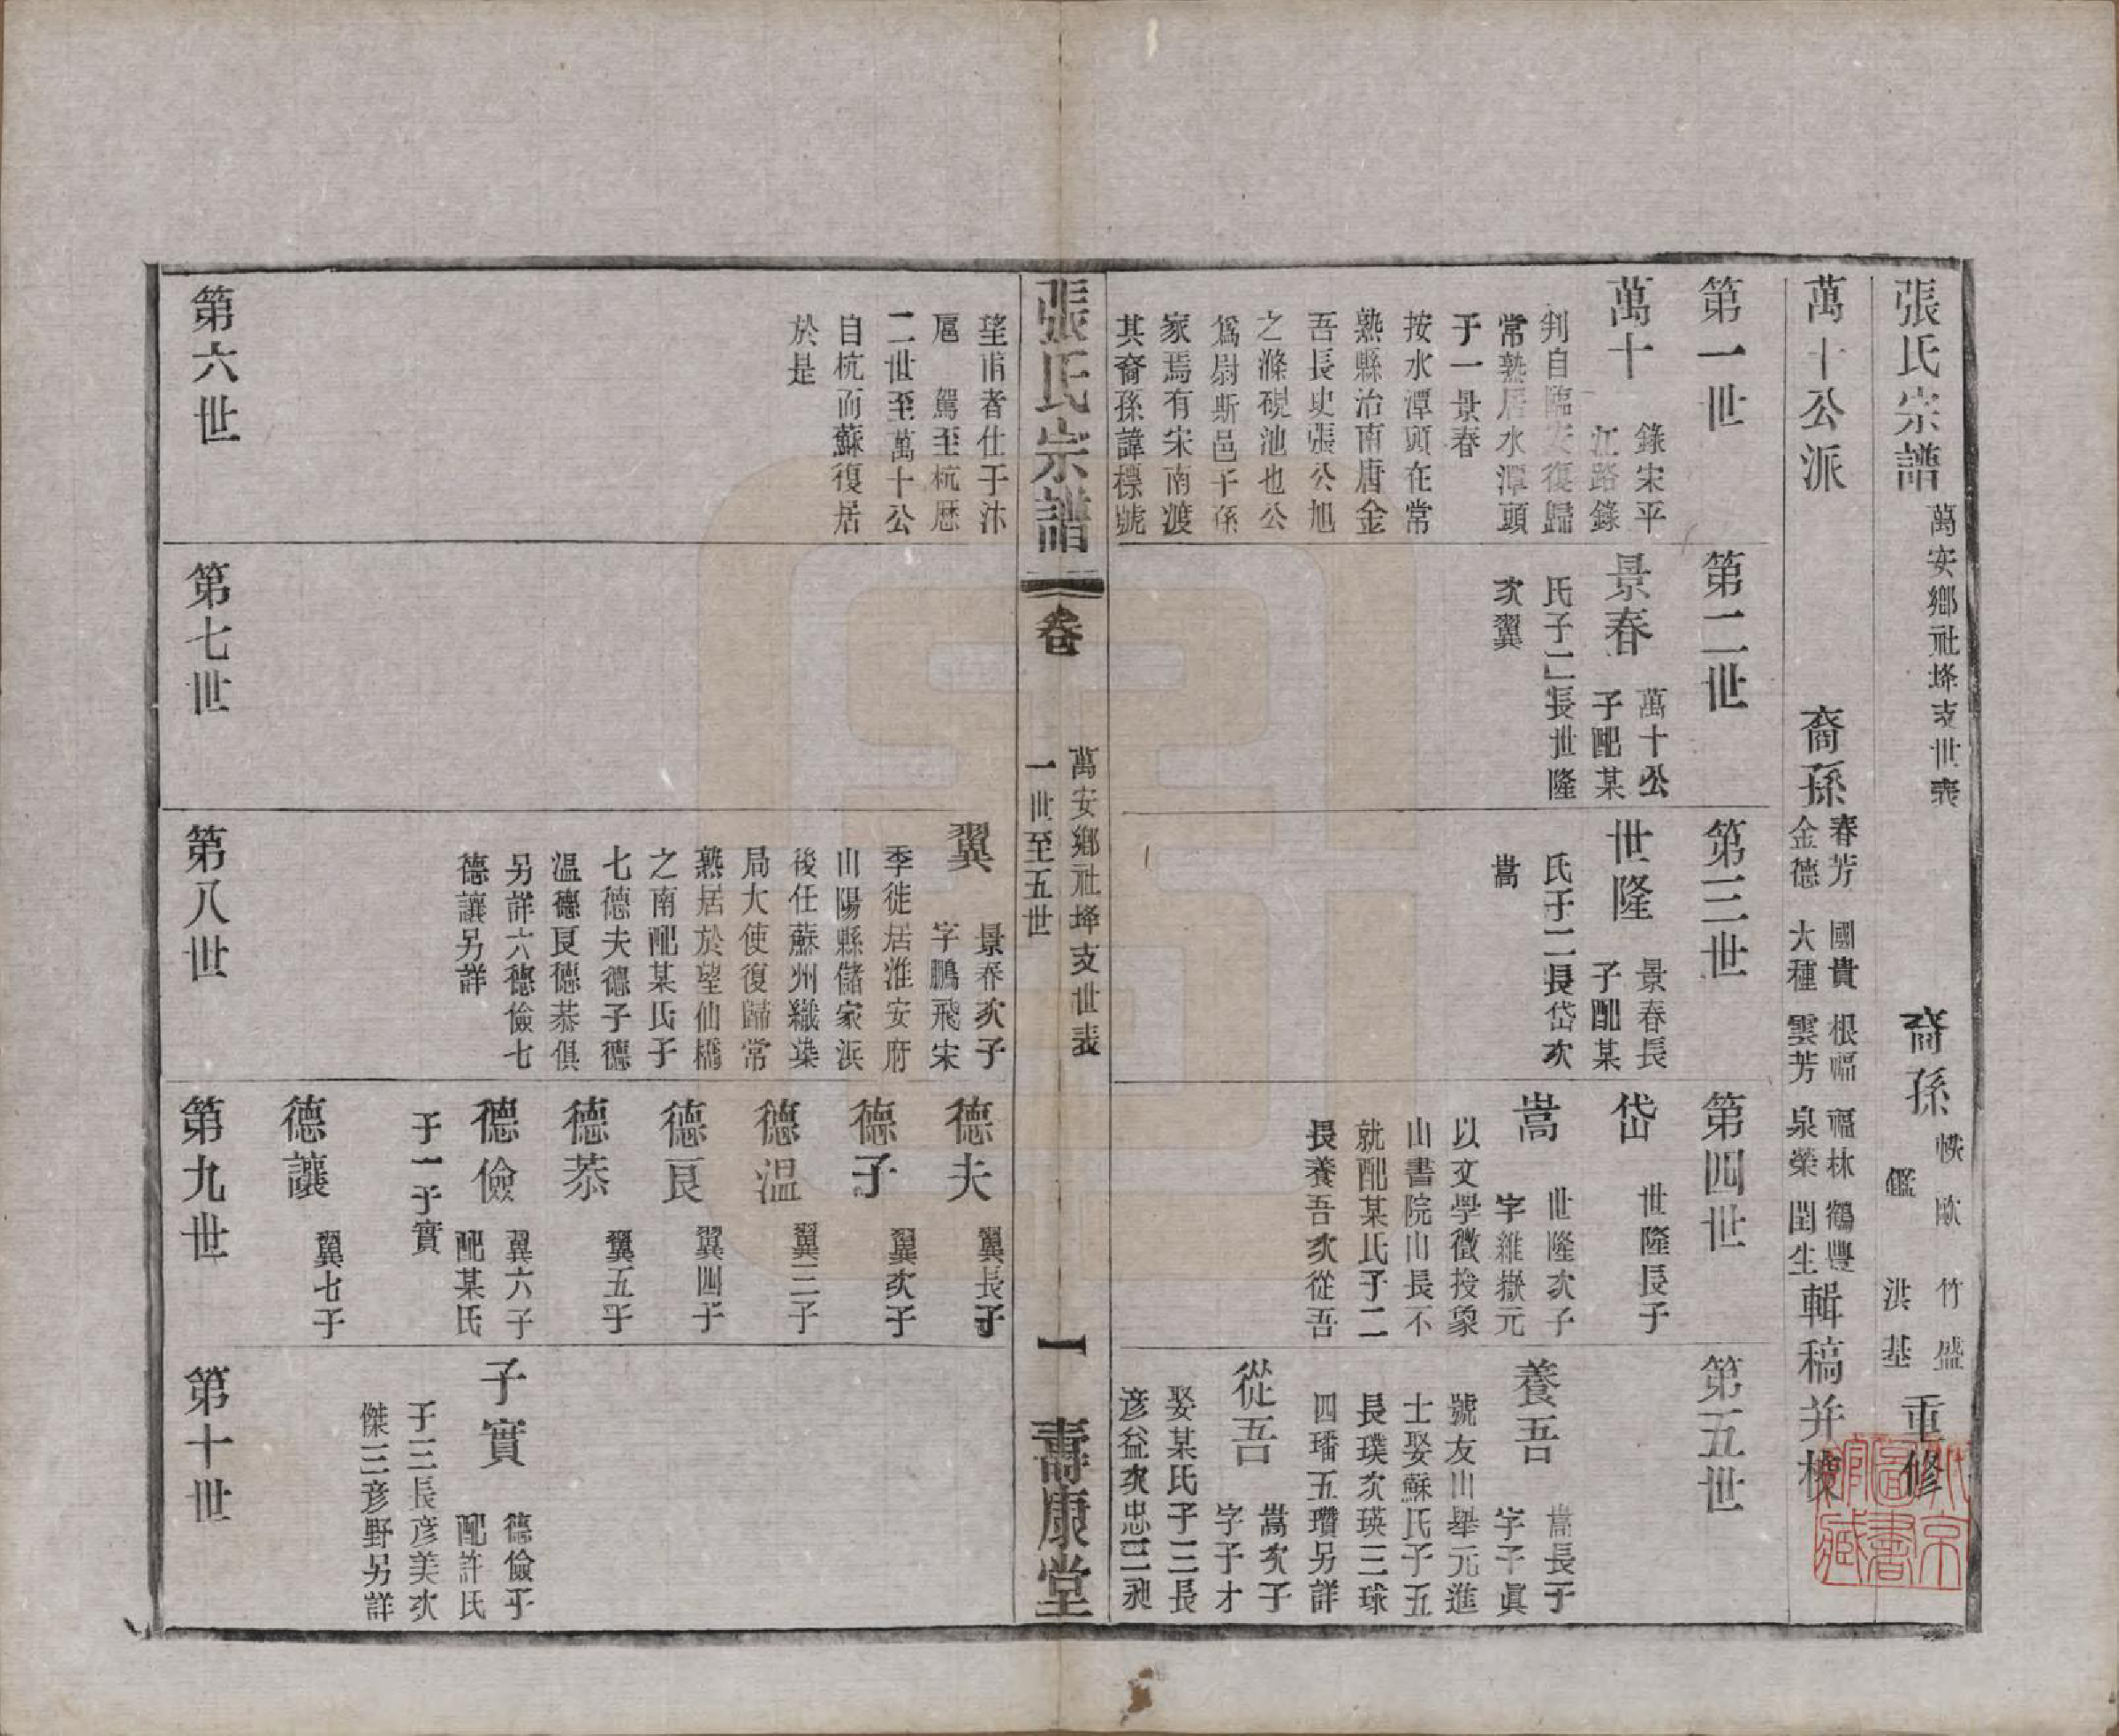 張氏宗譜
萬安鄉社垾支世表
裔孫
鑑
洪基
竹盛
重修
萬十公派
裔孫
春芳
金德
國貴
大種
根福
雲芳
福林
泉榮
鶴豐
閏生
輯稿并校
第一世
萬十
錄宋平
江路錄
判自臨安復歸
常熟居水潭頭
子一景春
按水潭頭在常
熟縣治南唐金
吾長史張公旭
之滌硯池也公
爲尉斯邑子孫
家焉有宋南渡
其裔孫諱標號
望甫者仕于汴
扈駕至杭歷
二世至萬十公
自杭而蘇復居
於是
第二世
景春
萬十公
子配某
氏子二長世隆
次翼
第三世
世隆
景春長
子配某
氏子二長岱次
嵩
翼
景春次子
字鵬飛宋
季徙居淮安府
山陽縣儲家浜
後任蘇州織染
局大使復歸常
熟居於望仙橋
之南配某氏子
七德夫德子德
温德良德恭俱
另詳六德儉七
德讓另詳
第四世
岱
世隆長子
嵩
世隆次子
字維嶽元
以文學徵授象
山書院山長不
就配某氏子二
長養吾次從吾
德夫
翼長子
德子
翼次子
德温
翼三子
德良
翼四子
德恭
翼五子
德儉
翼六子
配某氏
子一子實
德讓
翼七子
第五世
養吾
嵩長子
字子眞
號友山舉元進
士娶蘇氏子五
長璞次瑛三球
四璠五瓚另詳
從吾
嵩次子
字子才
娶某氏子三長
彥益次忠三昶
子實
德儉子
配許氏
子三長彥美次
傑三彥野另詳
張氏宗譜
卷
萬安鄉社垾支世表
一世至五世
一
壽康堂
第六世
第七世
第八世
第九世
第十世